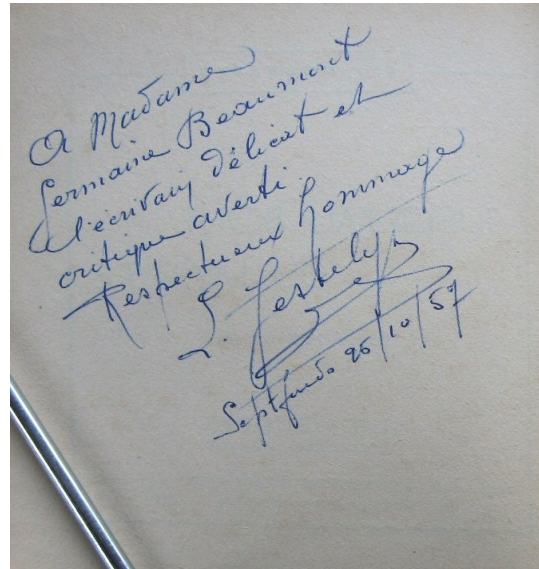 A Madame
Germaine Beaumont
l'écrivain délicat et
critique averti.
Respectueux hommage
Septfonds 25/10/57